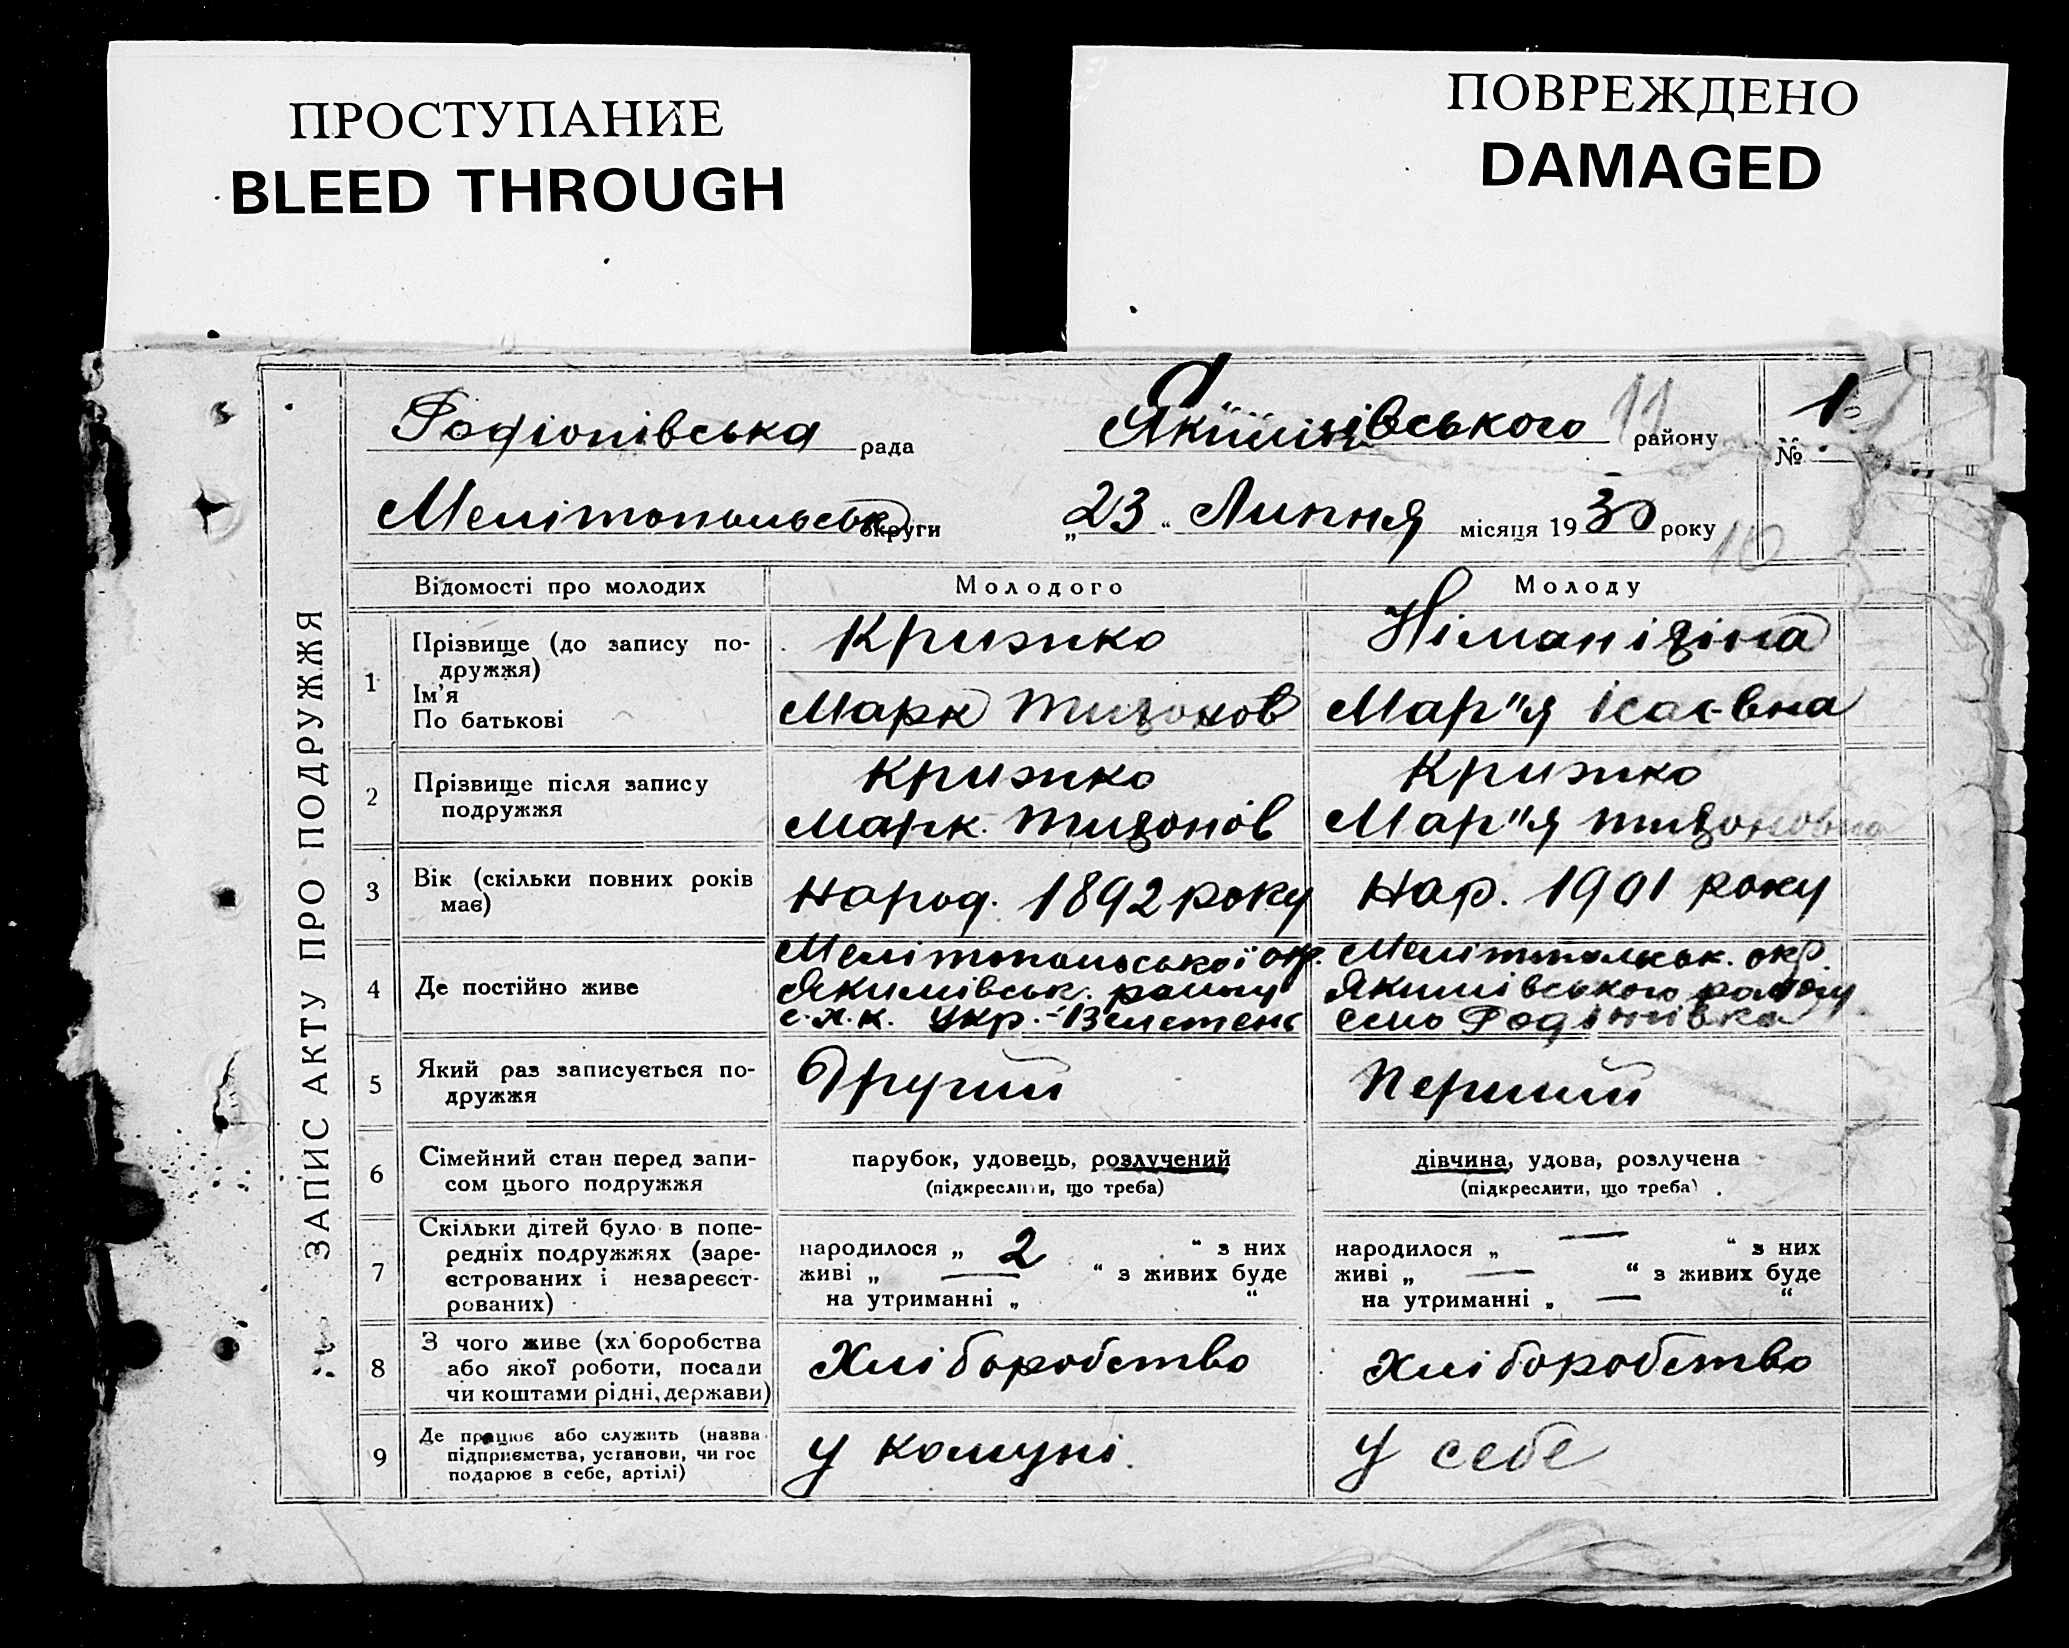 ПРОСТУПАНИЕ
BLEED THROUGH
ПОВРЕЖДЕНО
DAMAGED
ЗАПИС АКТУ ПРО ПОДРУЖЖЯ
Родіонівська рада
Якимівського району
11
№ 1
Мелітопольськ округи
„ 23 “ Липня місяця 1930 року
10
Відомості про молодих
Молодого
Молоду
1
Прізвище (до запису по-
дружжя)
Ім'я
По батькові
Крижко
Марк Тихонов
Мар"я Ісаєвна
2
Прізвище після запису
подружжя
Крижко
Марк. Тихонов
Крижко
Мар"я Тихоновна
3
Вік (скільки повних років
має)
Народ. 1892 року
Нар. 1901 року
4
Де постійно живе
Мелітопольської окр.
Якимівськ. району
с.г.к. Укр.-Велетень
Мелітопольськ. окр.
Якимівського району
село Родіонівка
5
Який раз записується по-
дружжя
Другий
Перший
6
Сімейний стан перед запи-
сом цього подружжя
парубок, удовець, розлучений
(підкреслити, що треба)
дівчина, удова, розлучена
(підкреслити, що треба)
7
Скільки дітей було в попе-
редніх подружжях (заре-
єстрованих і незареєст-
рованих)
народилося „ 2 “ з них
живі „ — “ з живих буде
на утриманні „ “
народилося „ — “ з них
живі „ — “ з живих буде
на утриманні „ — “
8
З чого живе (хліборобства
або якої роботи, посади
чи коштами рідні, держави)
Хліборобство
Хліборобство
9
Де працює або служить (назва
підприємства, установи, чи гос
подарює в себе, артілі)
У комуні.
У себе